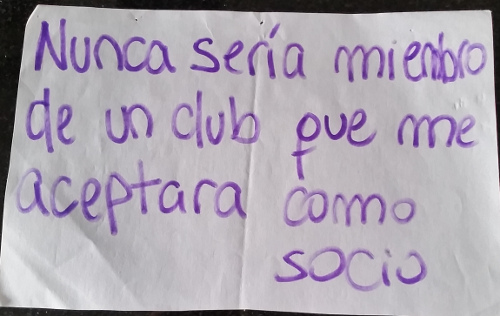 Nunca sería miembro
de un club que me
aceptara como
socio